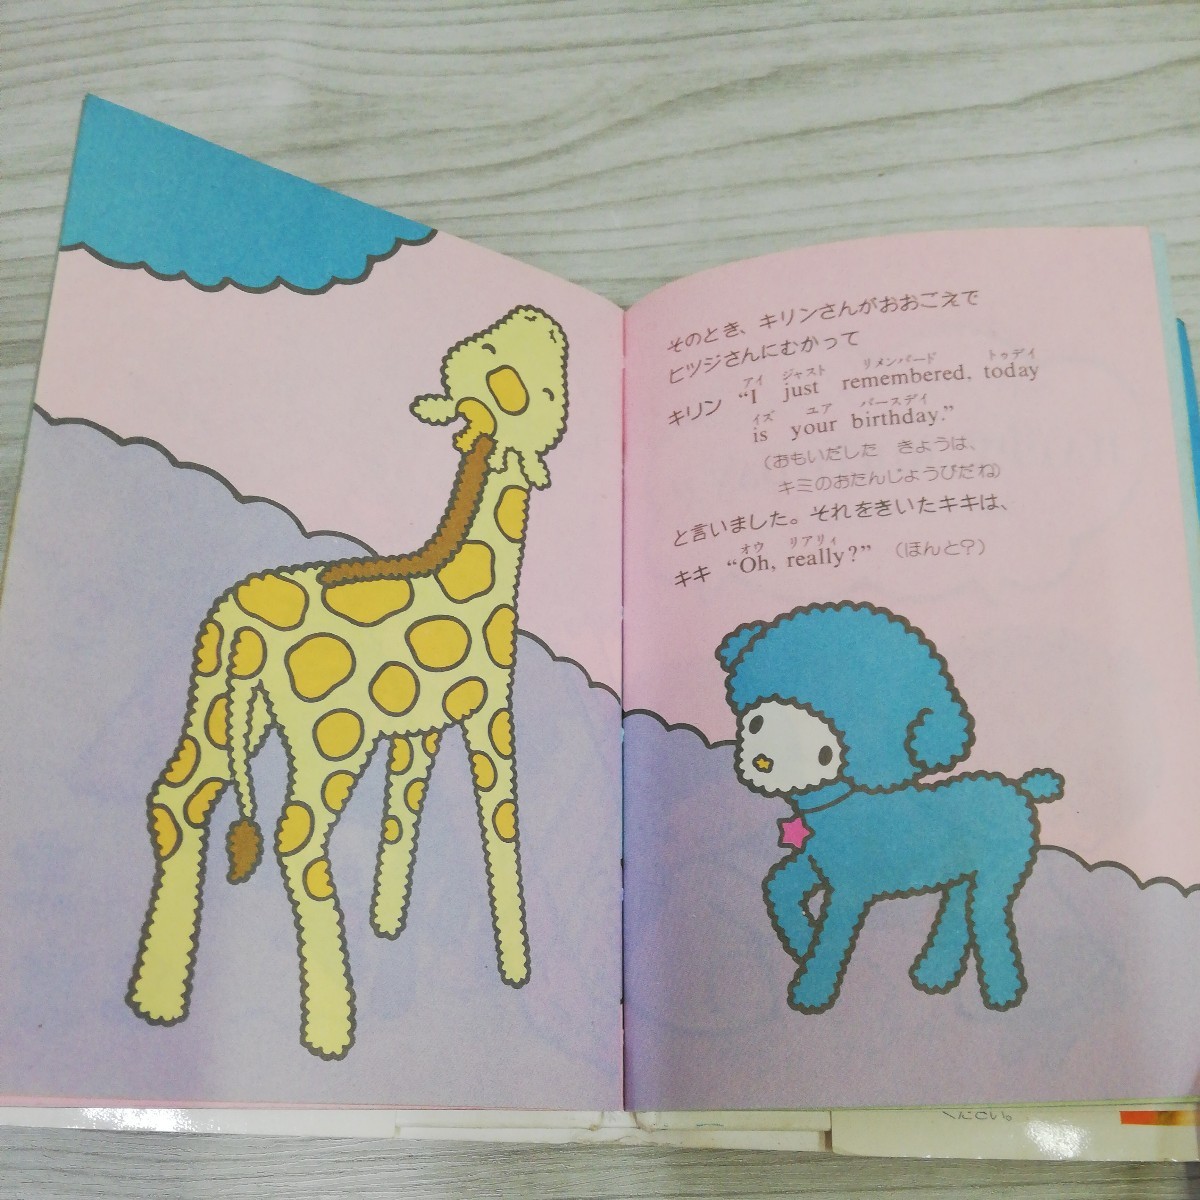 そのとき、キリンさんがおおこえで
ヒツジさんにむかって
アイ ジャスト リメンバード トゥデイ
キリン “I just remembered, today
イズ ユア バースデイ
is your birthday.”
(おもいだした きょうは、
キミのおたんじょうびだね)
と言いました。それをきいたキキは、
オウ リアリィ
キキ “Oh, really?” (ほんと?)
ください。